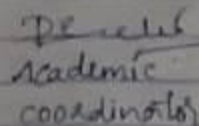 Academic
coordinator